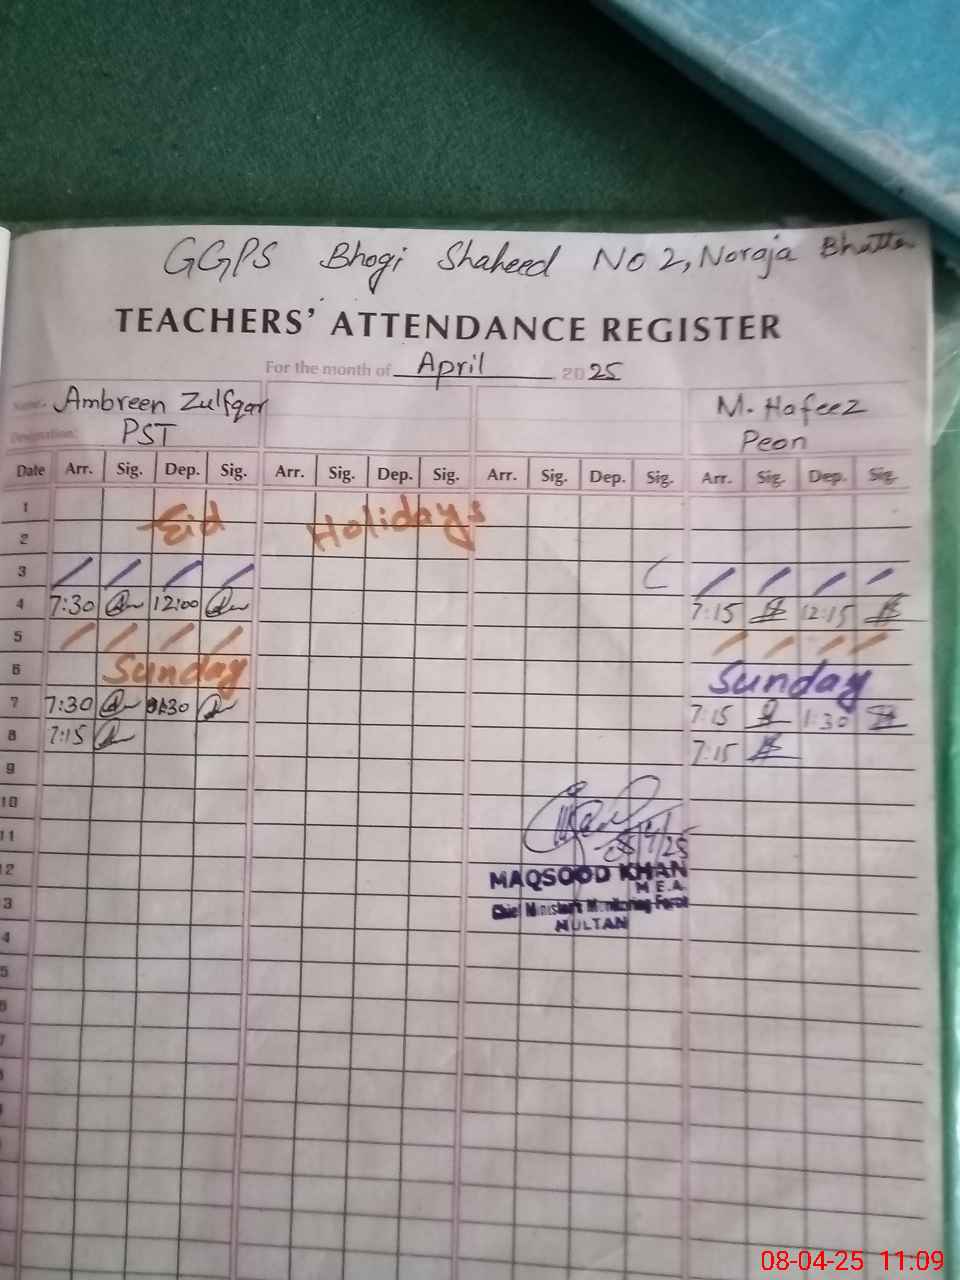 GGPS Bhogi Shaheed No 2, Noraja Bhutta
TEACHERS' ATTENDANCE REGISTER
For the month of April 2025
Name. Ambreen Zulfqar M. Hafeez
Designation: PST Peon
Date Arr. Sig. Dep. Sig. Arr. Sig. Dep. Sig. Arr. Sig. Dep. Sig. Arr. Sig. Dep. Sig.
1 Eid Holidays
2
3
4 7:30 12:00 7:15 12:15
5
6 Sunday Sunday
7 7:30 1:30 7:15 1:30
8 7:15 7:15
9
10
11 08/4/25
12 MAQSOOD KHAN
M.E.A.
3 Chief Minister's Monitoring Force
MULTAN
4
5
6
7
08-04-25 11:09